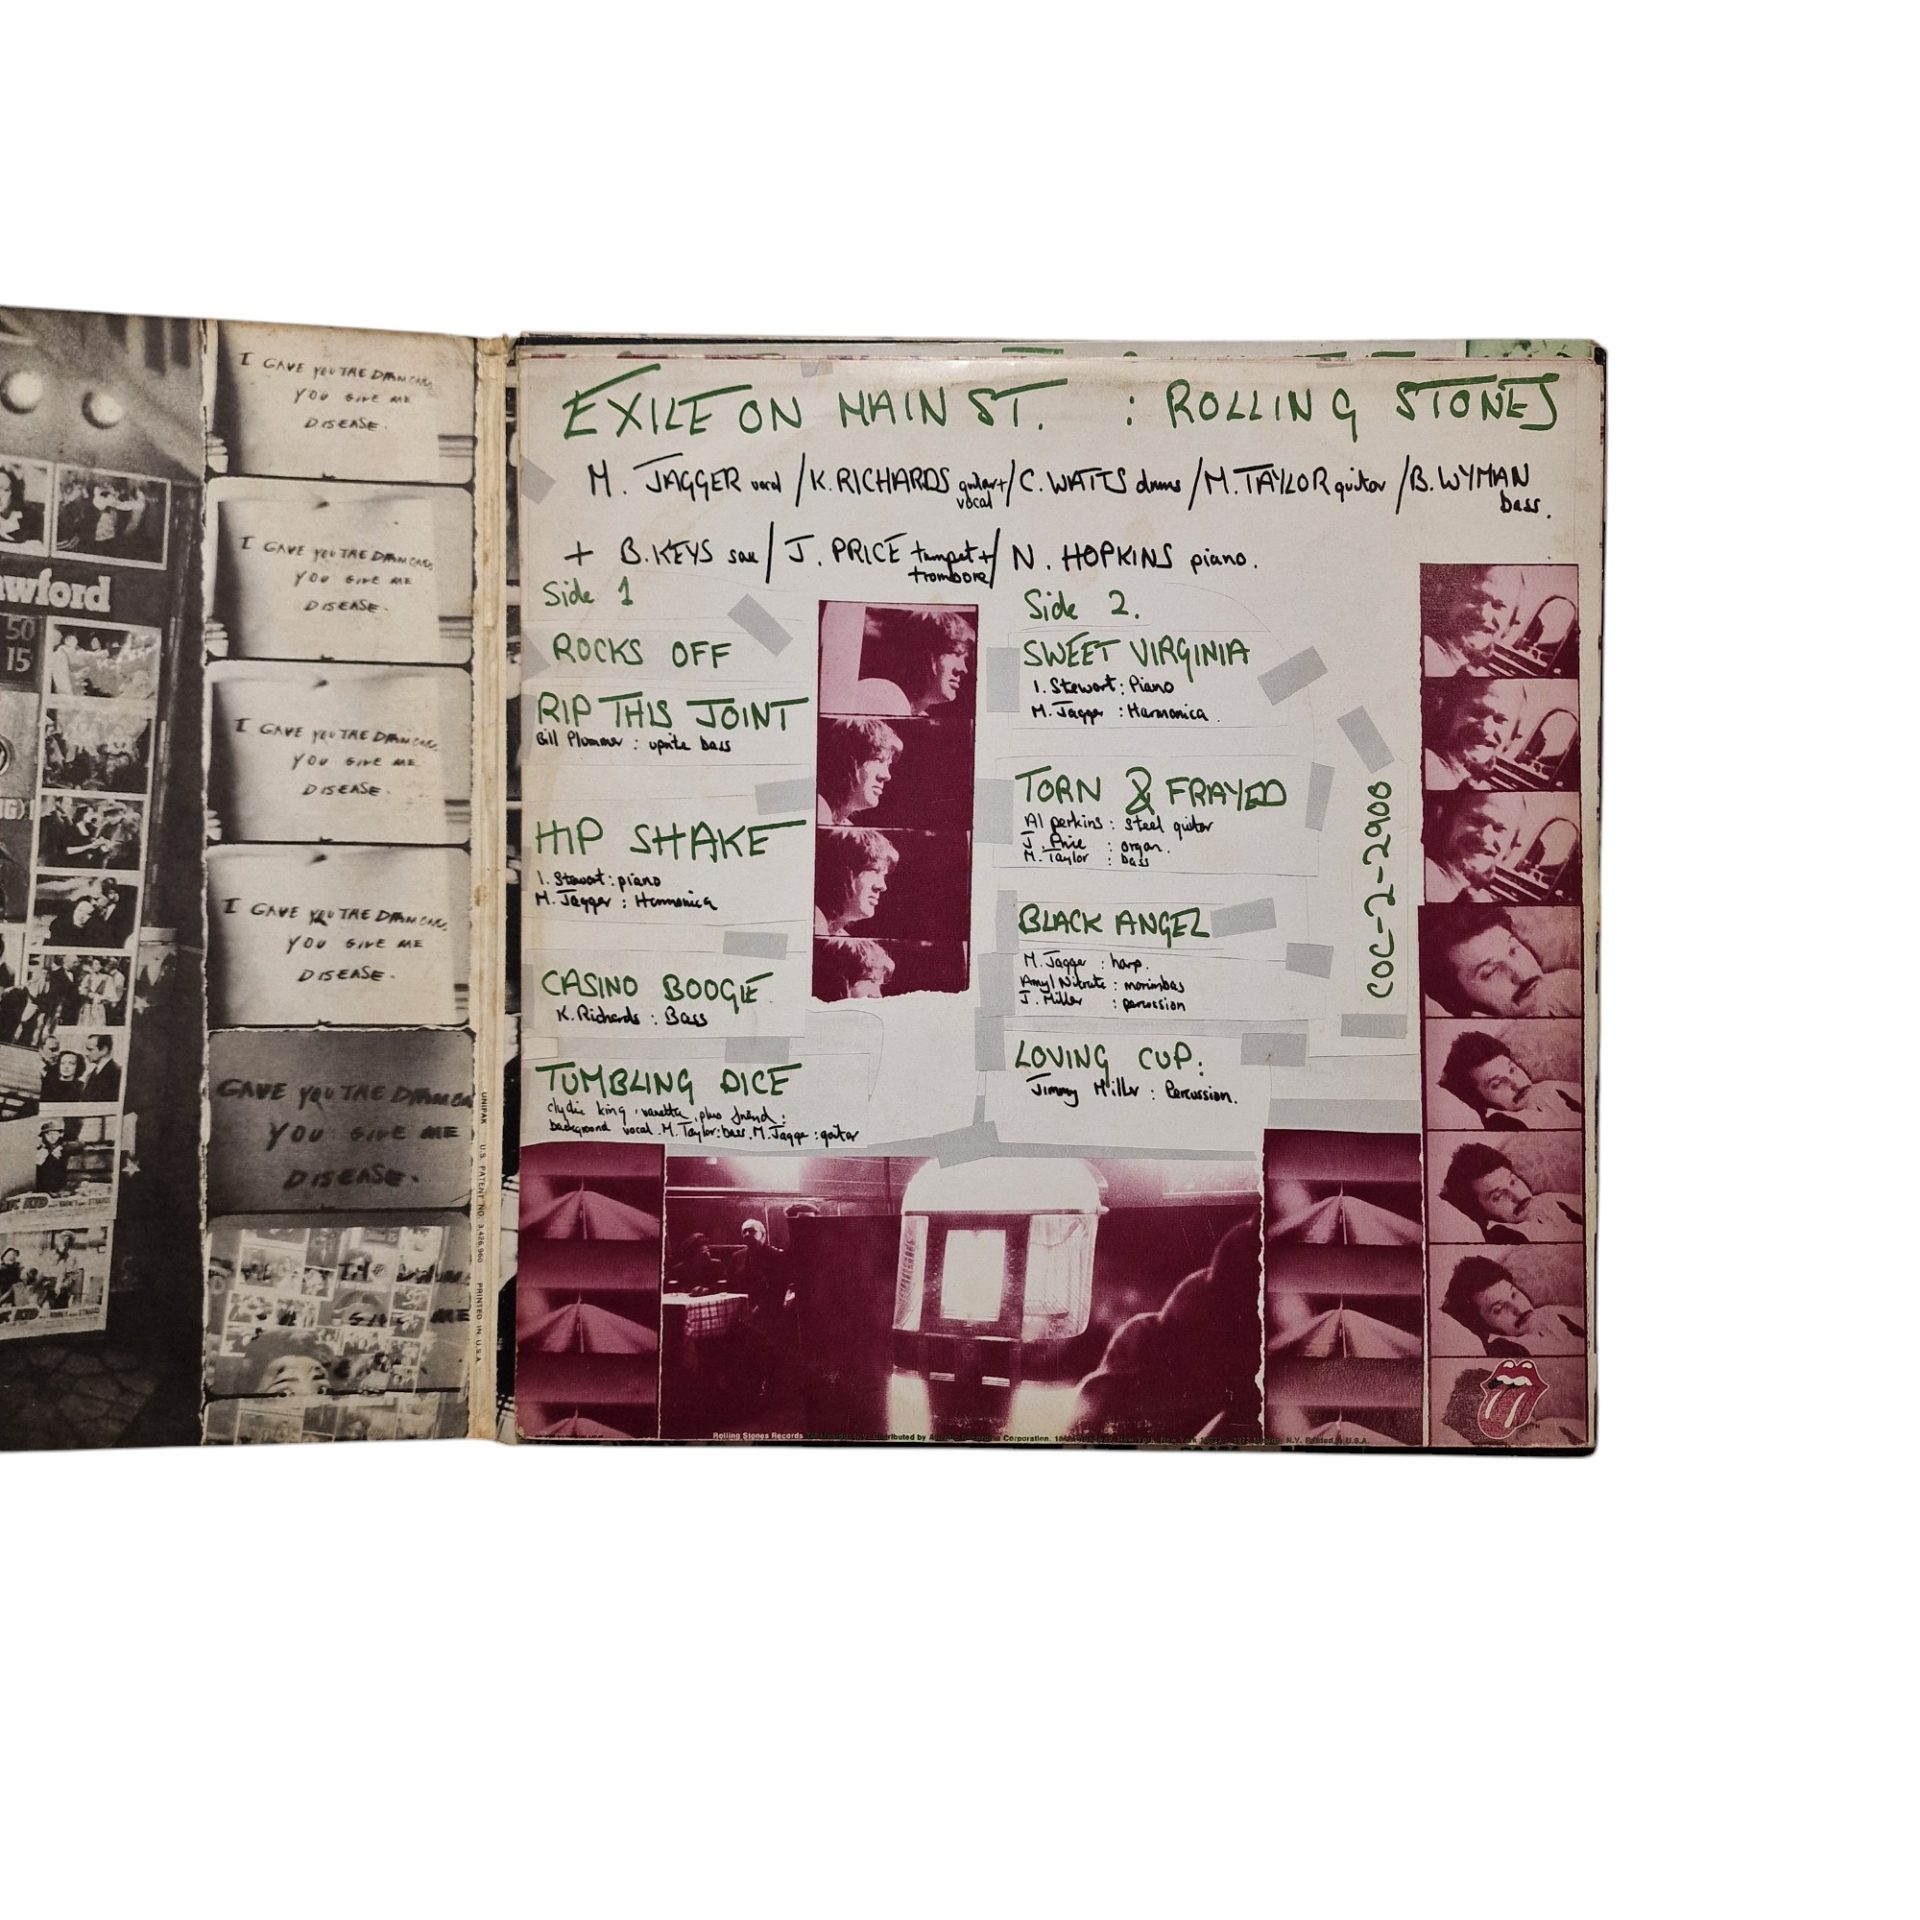 I GAVE YOU THE DIAMONDS
YOU GIVE ME
DISEASE.
I GAVE YOU THE DIAMONDS
YOU GIVE ME
DISEASE.
I GAVE YOU THE DIAMONDS
YOU GIVE ME
DISEASE.
I GAVE YOU THE DIAMONDS
YOU GIVE ME
DISEASE.
GAVE YOU THE
YOU GIVE ME
DISEASE.
ME
wford
50
15
UNIPAK U.S. PATENT NO. 3,426,960 PRINTED IN U.S.A.
EXILE ON MAIN ST. : ROLLING STONES
M. JAGGER vocal / K. RICHARDS guitar + vocal / C. WATTS drums / M. TAYLOR guitar / B. WYMAN bass.
+ B. KEYS sax / J. PRICE trumpet + trombone / N. HOPKINS piano.
Side 1
ROCKS OFF
RIP THIS JOINT
Bill Plummer : uprite bass
HIP SHAKE
I. Stewart : piano
M. Jagger : Harmonica
CASINO BOOGIE
K. Richards : Bass
TUMBLING DICE
clydie king, vanetta, plus friend :
background vocal. M. Taylor : bass. M. Jagger : guitar
Side 2.
SWEET VIRGINIA
I. Stewart : Piano
M. Jagger : Harmonica.
TORN & FRAYED
Al perkins : steel guitar
J. Price : organ.
M. Taylor : bass
BLACK ANGEL
M. Jagger : harp.
Amyl Nitrate : marimbas
J. Miller : percussion
LOVING CUP :
Jimmy Miller : Percussion.
COC-2-2900
Rolling Stones Records
Distributed by
Corporation,
N.Y. Printed in U.S.A.